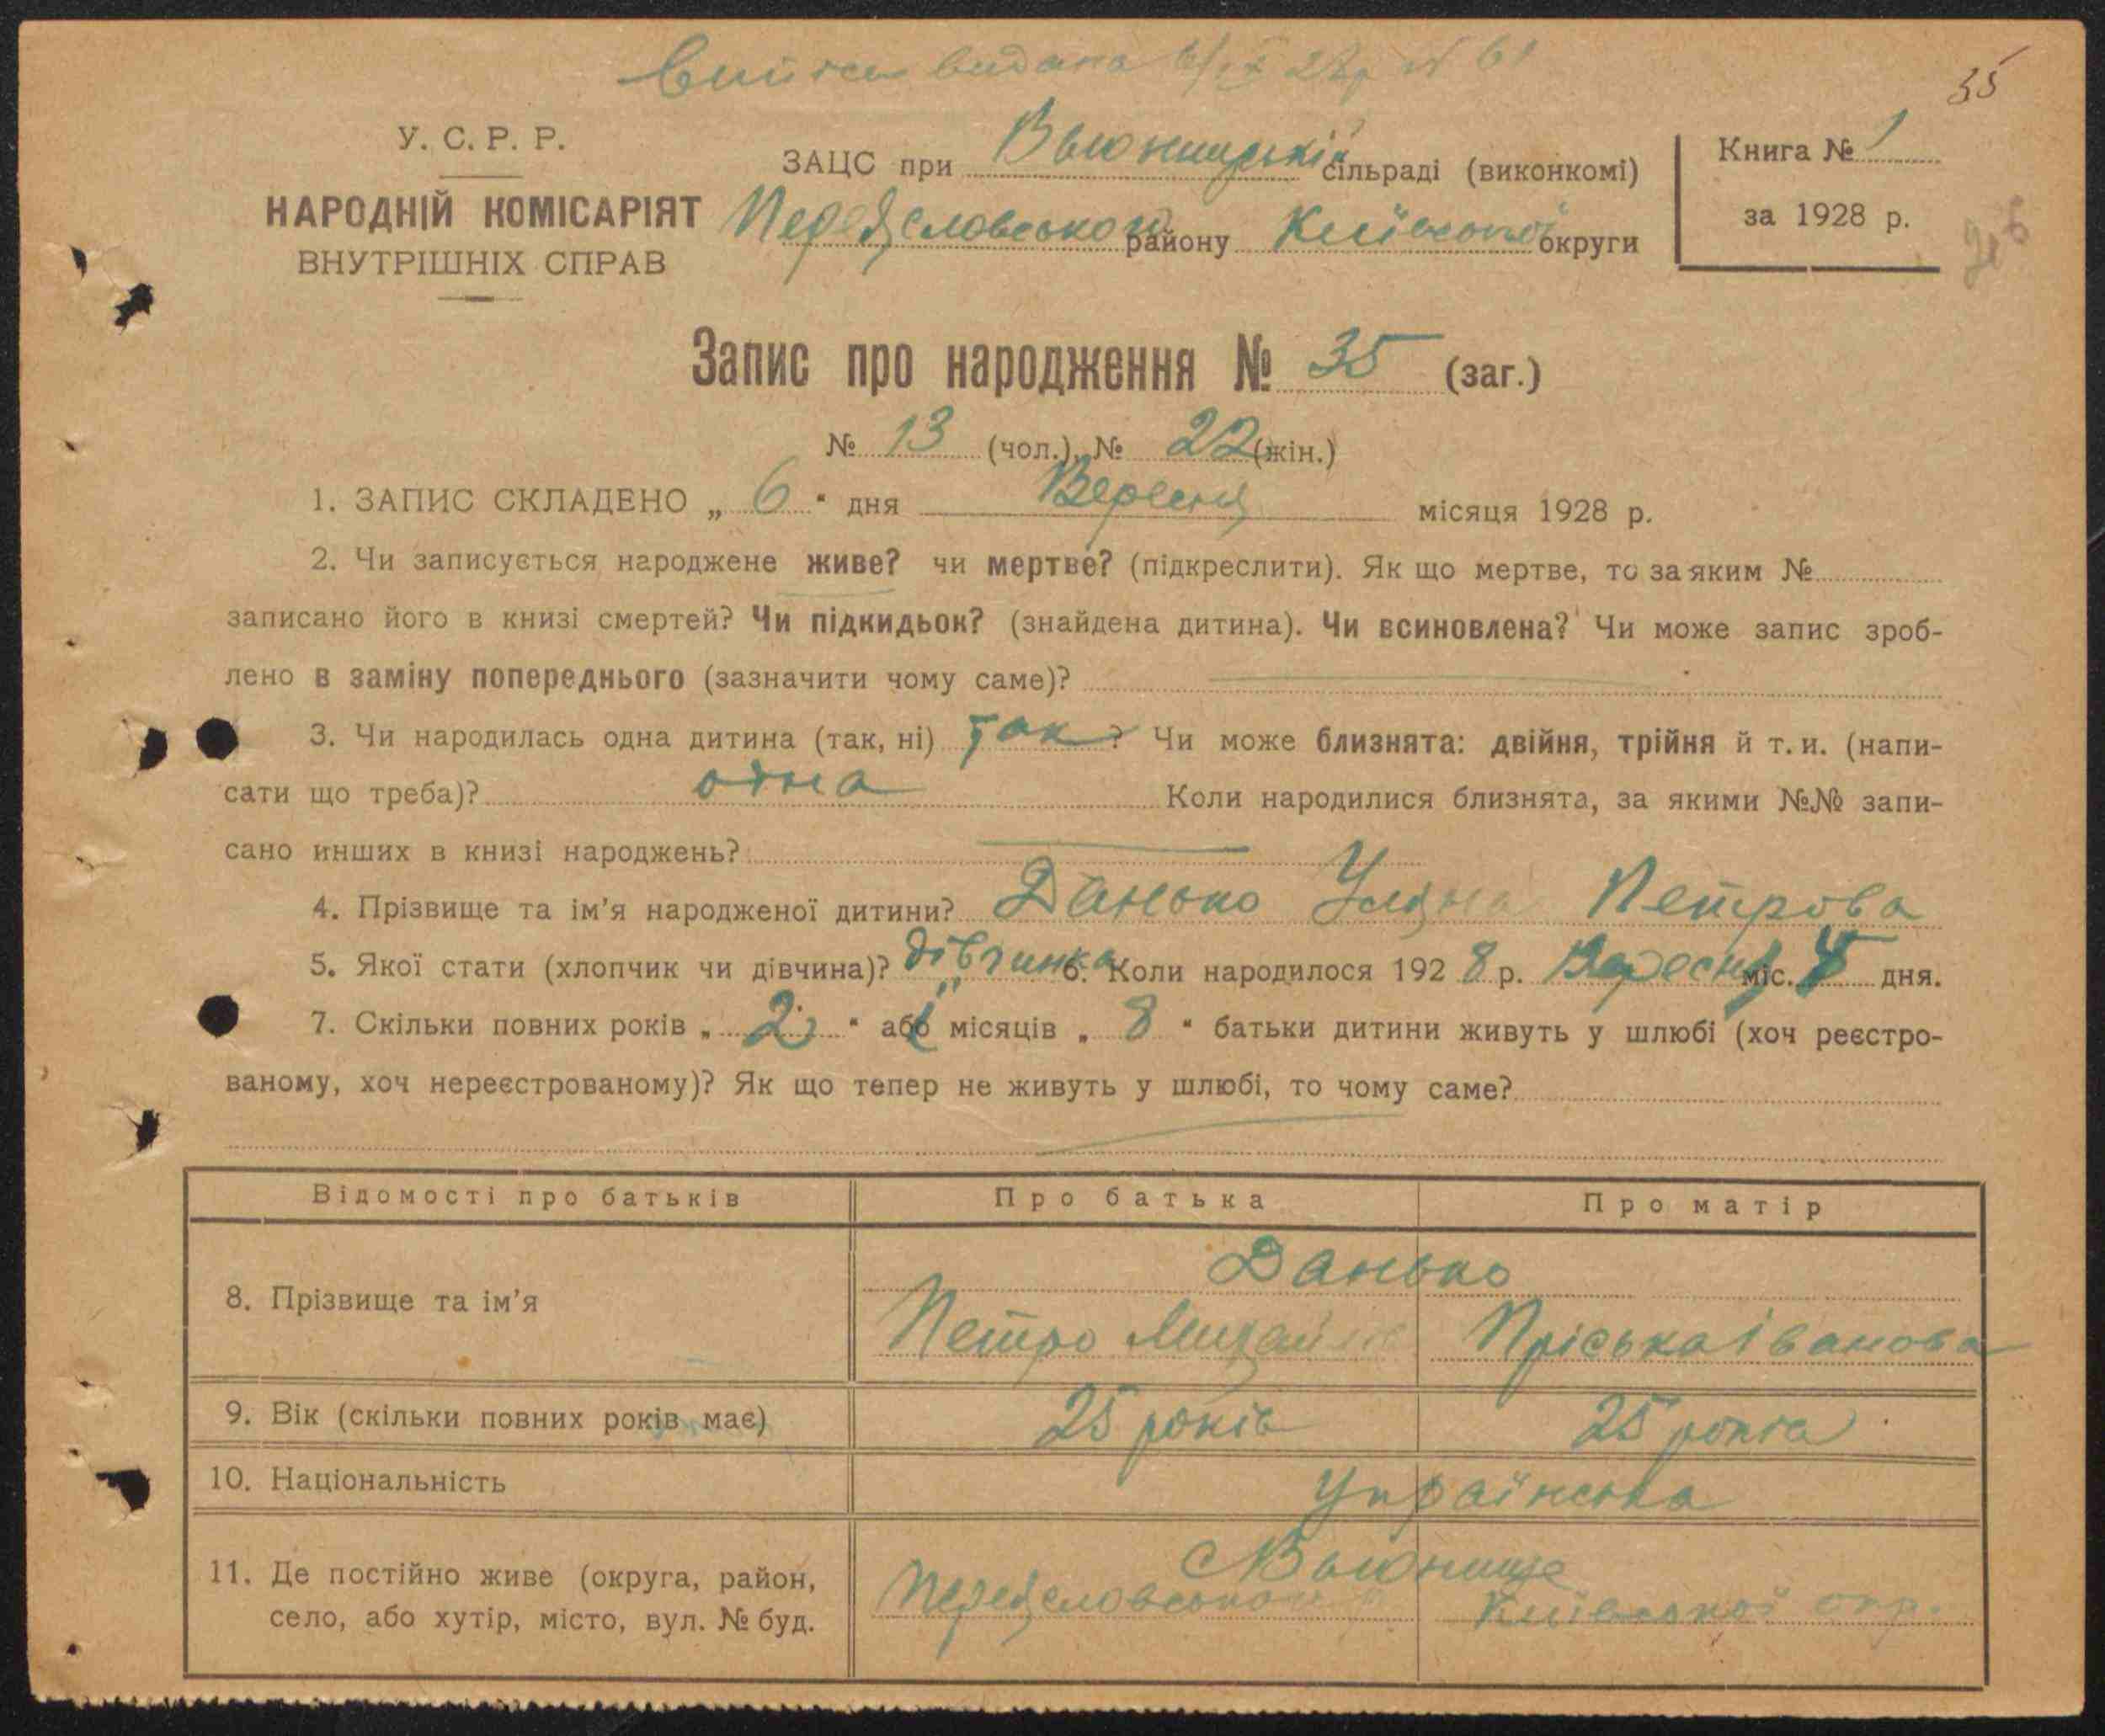 видана 6/IX 28р № 61
35
У. С. Р. Р.
НАРОДНІЙ КОМІСАРІЯТ
ВНУТРІШНІХ СПРАВ
ЗАЦС при Вьюницькій сільраді (виконкомі)
Переяславського району Київської округи
Книга № 1
за 1928 р.
Запис про народження № 35 (заг.)
№ 13 (чол.), № 22 (жін.)
1. ЗАПИС СКЛАДЕНО „ 6 " дня Вересня місяця 1928 р.
2. Чи записується народжене живе? чи мертве? (підкреслити). Як що мертве, то за яким №
записано його в книзі смертей? Чи підкидьок? (знайдена дитина). Чи всиновлена? Чи може запис зроб-
лено в заміну попереднього (зазначити чому саме)?
3. Чи народилась одна дитина (так, ні) так ? Чи може близнята: двійня, трійня й т. и. (напи-
сати що треба)? одна Коли народилися близнята, за якими №№ запи-
сано инших в книзі народжень?
4. Прізвище та ім'я народженої дитини? Данько Уляна Петрова
5. Якої стати (хлопчик чи дівчина)? дівчинка 6. Коли народилося 192 8 р. Вересня міс. 4 дня.
7. Скільки повних років „ 2 " або місяців „ 8 " батьки дитини живуть у шлюбі (хоч реєстро-
ваному, хоч нереєстрованому)? Як що тепер не живуть у шлюбі, то чому саме?
Відомості про батьків Про батька Про матір
8. Прізвище та ім'я Данько
Петро Михайлов Пріська Іванова
9. Вік (скільки повних років має) 25 років 25 років
10. Національність Українська
11. Де постійно живе (округа, район,
село, або хутір, місто, вул. № буд.
с Вьюнище
Переяславського Київської окр.